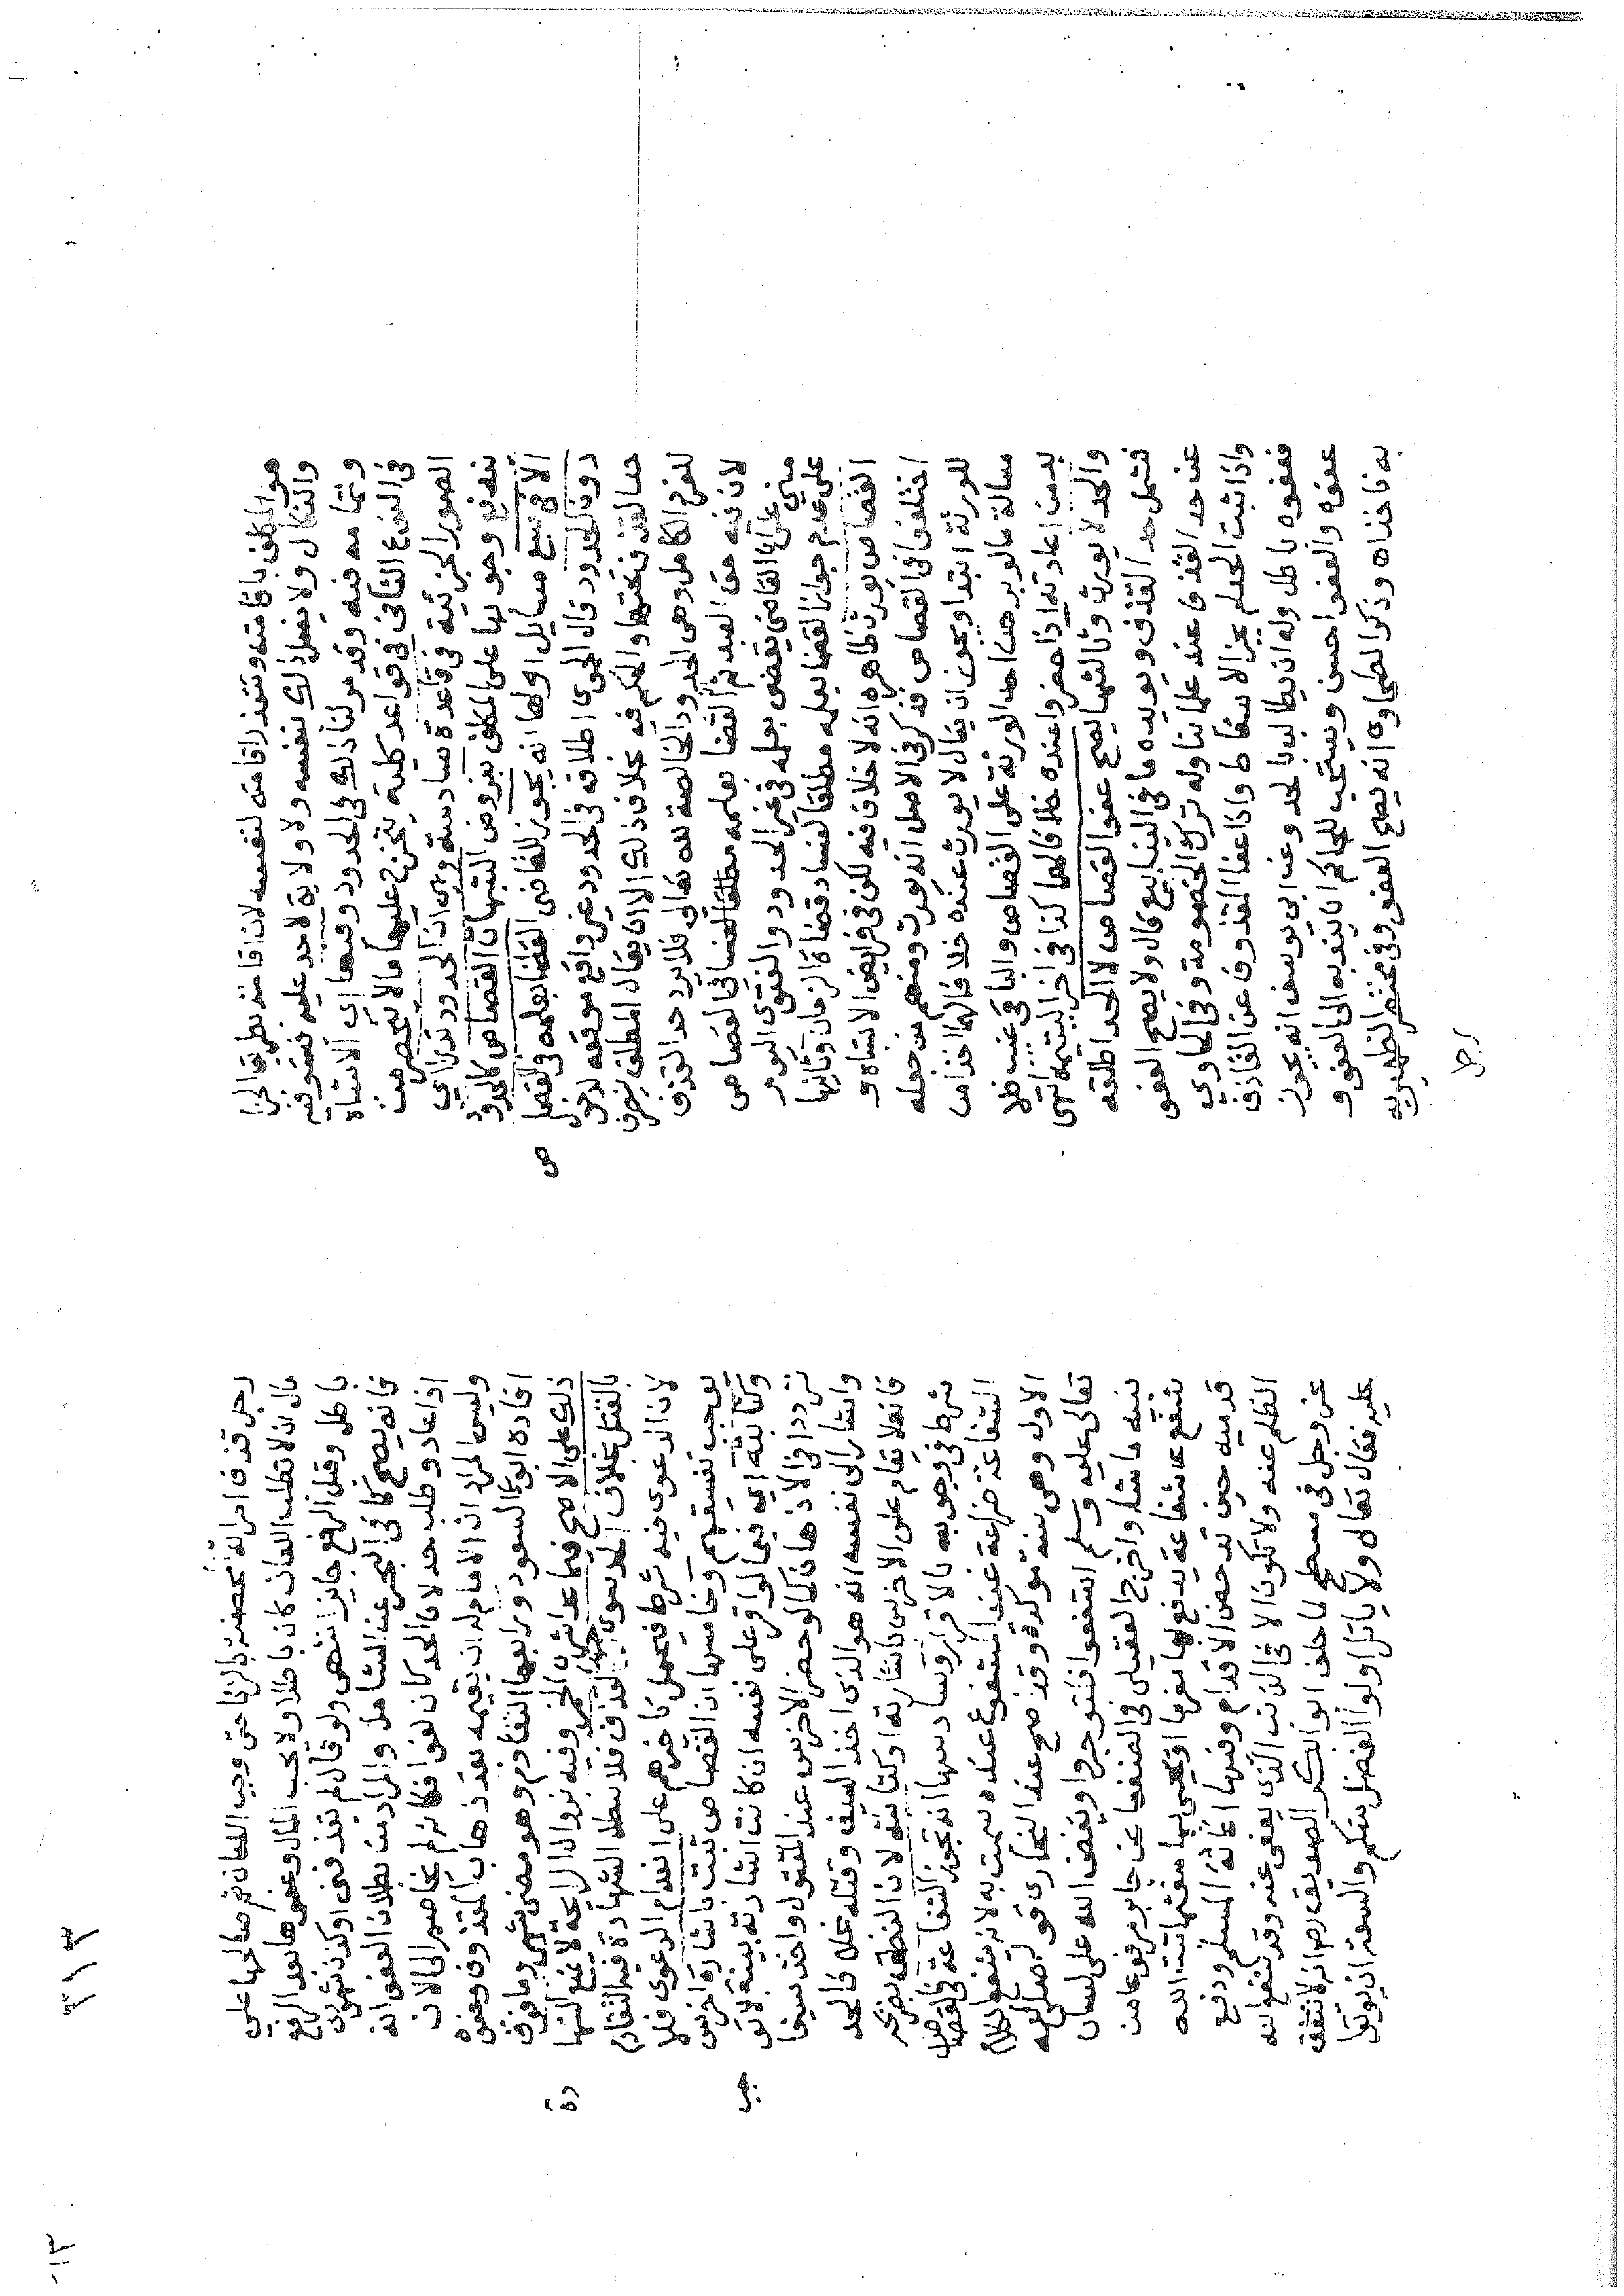 هو المكلف باقامته وتتعذر اقامته لنفسه لان اقامته بطريق الخزا
والنكال ولا يفعل ذلك بنفسه ولا ولاية لاحد عليه ليستوفيه
وتمامه فيه وقد مر لنا ذلك في الحدود وفيها اي الاشباه
في النوع الثاني في قواعد كلية يتخرج عليها ما لا ينحصر من
الصور الجزئية في قاعدة سادسة وهي ان الحدود تدرا اي
تندفع وجوبها على المكلف بعروض الشبهات القصاص كالحدود
الا في سبع مسايل اولها انه يجوز للقاضي القضا بعلمه في القصا
ص
دون الحدود قال الحموي اطلاقه في الحدود غير واقع موقعه لدخول
حد القذف تحتها والحكم فيه بخلاف ذلك الا ان يقال المطلق ينصرف
للفرد الكامل وهي الحدود الخالصة لله تعالى فلا يرد حد القذف
لان فيه حق العبد ثم القضا بعلمه مطلقا في القصاص
مبني على ان القاضي يقضي بعلمه في غير الحدود والفتوى اليوم
على عدم جواز القضا بعلمه مطلقا لفساد قضاة الزمان وثانيها
القصاص يورث ظاهره انه لا خلاف فيه لكن في فرايض الاشباه و
اختلفوا في القصاص فذكر في الاصل انه يورث ومنهم من جعله
للورثة ابتدا ويجوز ان يقال لا يورث عنده خلافا لهما اخذا من
مسالة ما لو برهن احد الورثة على القصاص والباقي غيب فلا
بد من اعادته اذا حضروا عنده خلافا لهما كذا في اخر اليتيمة انتهى
والحد لا يورث وثالثها يصح عفو القصاص لا الحد اطلقه
فشمل حد القذف ويويده ما في الينابيع قال ولا يصح العفو
عن حد القذف عند علماينا وله ترك الخصومة وفي الحاوي
واذا ثبت الحد لم يجز الاسقاط واذا عفا المقذوف عن القاذف
فعفوه باطل وله ان يطالب بالحد وعن ابي يوسف انه يجوز
عفوه والعفو احسن ويستحب للحاكم ان يندبه الى العفو و
به ناخذ اه وذكر الطحاوي انه يصح العفو وفي مختصر الظهيرية
رجل
٣١٣
رجل قذف امراة محصنة بالزنا حتى وجب اللعان ثم صالحها على
مال ان لا تطلب اللعان كان باطلا ولا يجب المال وعفوها بعد الرفع
باطل وقبل الرفع جايز انتهى ولو قال لم يقذفني او كذب شهودي
فانه يصح كما في البحر عن الشامل والمراد من بطلان العفو انه
اذا عاد وطلب حد لان الحد كان لغوا فكانه لم يخاصم الى الان
وليس المراد ان الامام له ان يقيمه بعد ذهاب المقذوف وعفوه
افاده ابو السعود ورابعها التقادم وهو مضي شهر وما فوق
ذلك على الاصح فيما عدا شرب الخمر وفيه بزوال الرايحة لا يمنع الشها
دة
بالقتل بخلاف الحد سوى حد القذف فلا تبطل الشهادة فيه التقادم
لان الدعوى فيه شرط فيحمل تاخيرهم على انعدام الدعوى فلا
يوجب تفسيقهم وخامسها ان القصاص تثبت باشارة اخرس
وكتابته اي فيما لو اقر على نفسه ان كانت اشارته بينة لا تو
جب
ترددا في الاذهان كما لو حضر الاخرس عند المقتول واخذ سيفا
واشار الى نفسه انه هو الذي اخذ السيف وقتله بخلاف الحد
فانه لا يقام على الاخرس باشارته او كتابته لان النطق تصريح
شرط في وجوبه بالاقرار وسادسها انه تجوز الشفاعة في القصاص
الشفاعة ضراعة عند المشفوع عنده سمت به لانه يشفع الكلام
الاول وهي سنة موكدة وقد صح عند البخاري قوله صلى الله
تعالى عليه وسلم اشفعوا فلتوجروا ويقضي الله على لسان
نبيه ما شاء واخرج العقيلي في الضعفا عن جابر مرفوعا من
شفع شفاعة يدفع بها مغرما او يحيي بها مغنما ثبت الله
قدميه حين تدحض الاقدام وفيها اغاثة المسلم ودفع
الظلم عنه ولا تكون الا في الذنب الذي يعفى عنه وقد شفع الله
عز وجل في مسطح لما حلف ابو بكر الصديق رض انه لا ينفق
عليه فقال تعالى ولا ياتل اولوا الفضل منكم والسعة ان يوتوا